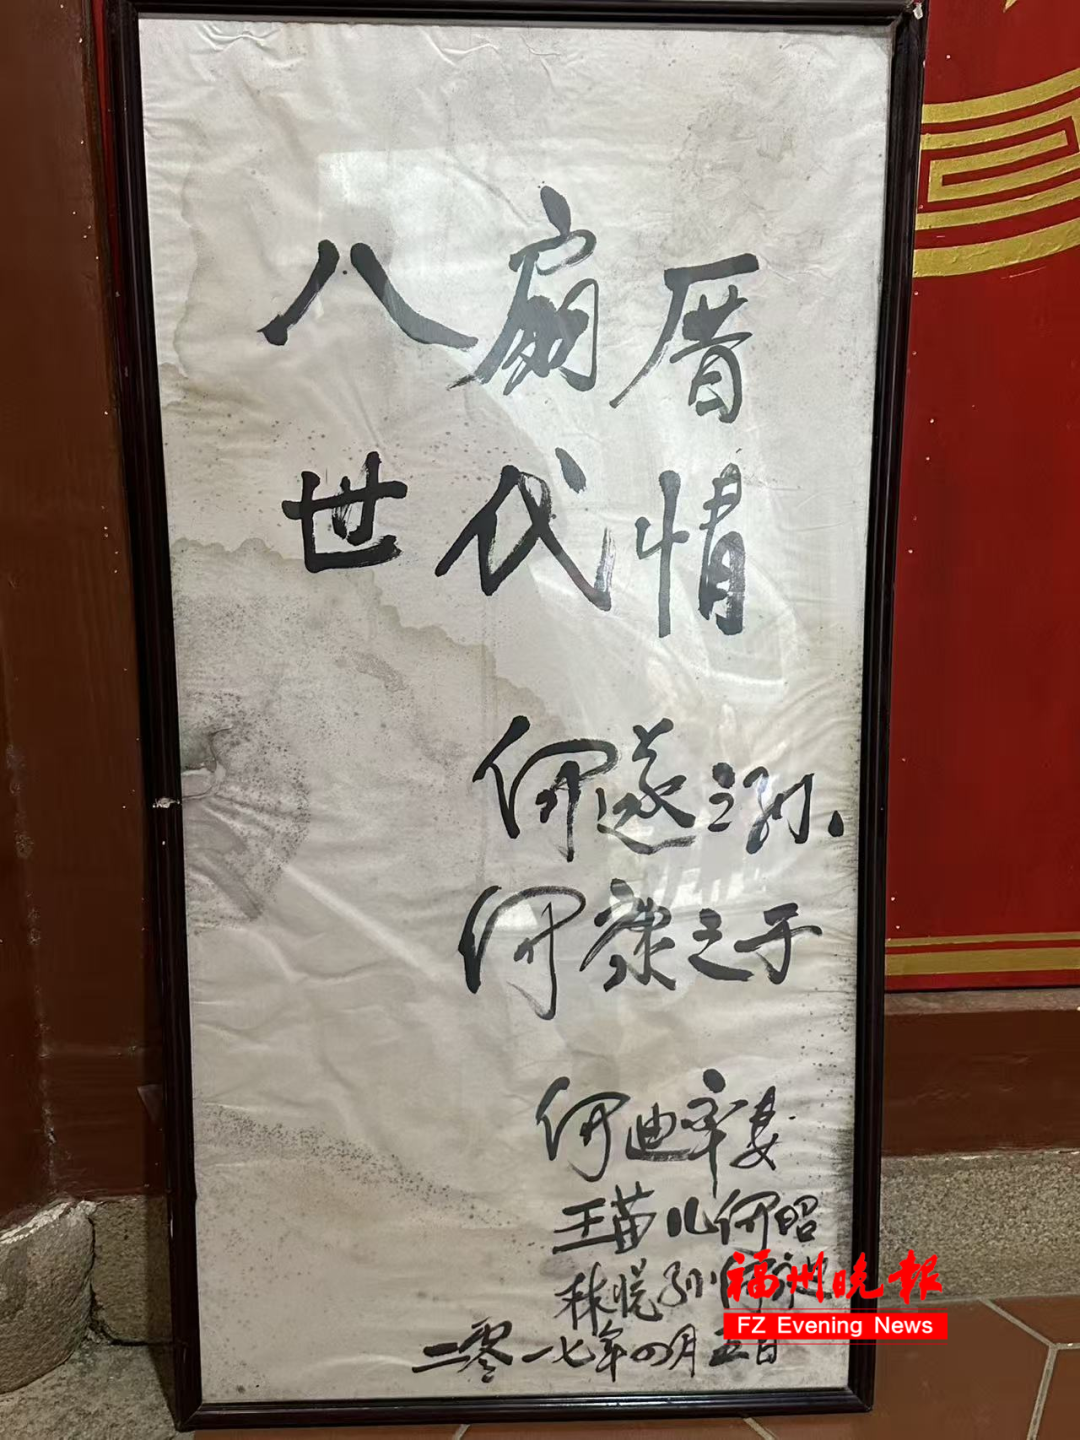 八扇厝
世代情
何遂之孙、
何康之子
何迪率妻
王苗儿何昭
林悦孙何
二零一七年四月五日
福州晚报
FZ Evening News